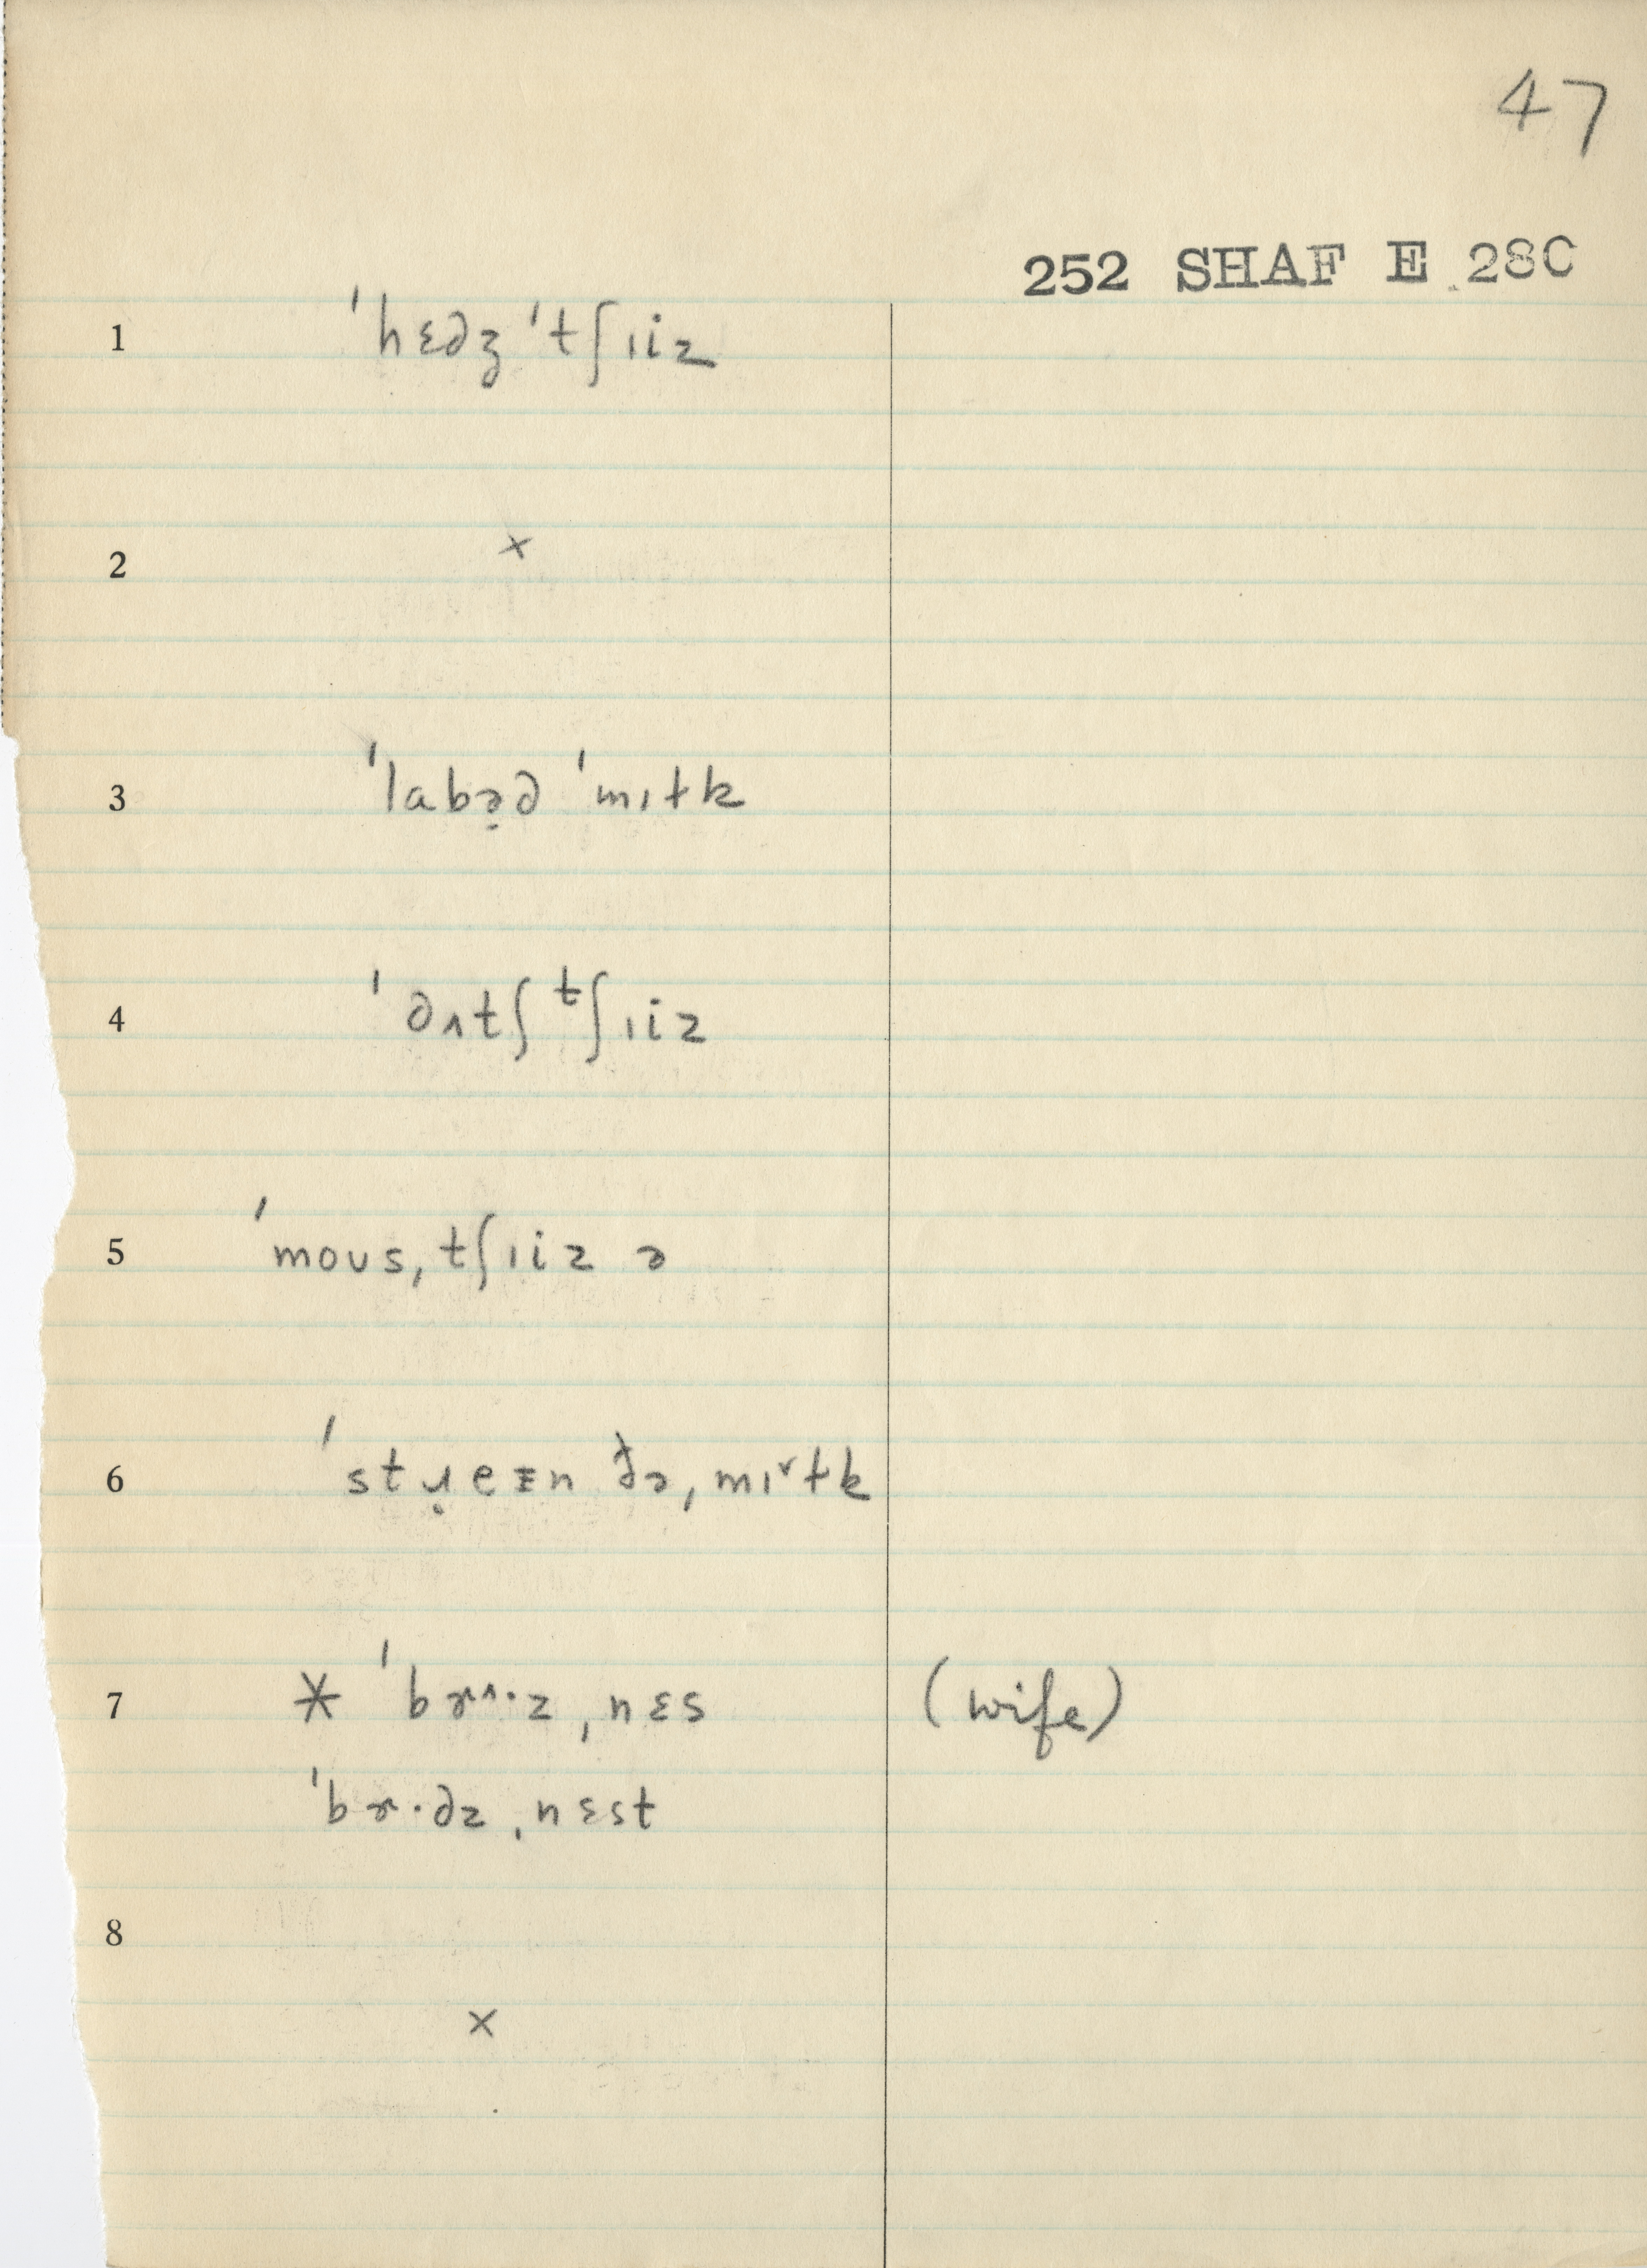 47
252 SHAF E 28C
1 ˈhɛdʒ ˈtʃɪiz
2 ×
3 ˈlabə̣d ˈmɪɫk
4 ˈdʌtʃ tʃɪiz
5 ˈmoʊsˌtʃɪiz ə
6 ˈstɹ̣eɪn dəˌmɪ˅ɫk
7 * ˈbɝ^·zˌnɛs (wife)
ˈbɝ·dzˌnɛst
8 ×